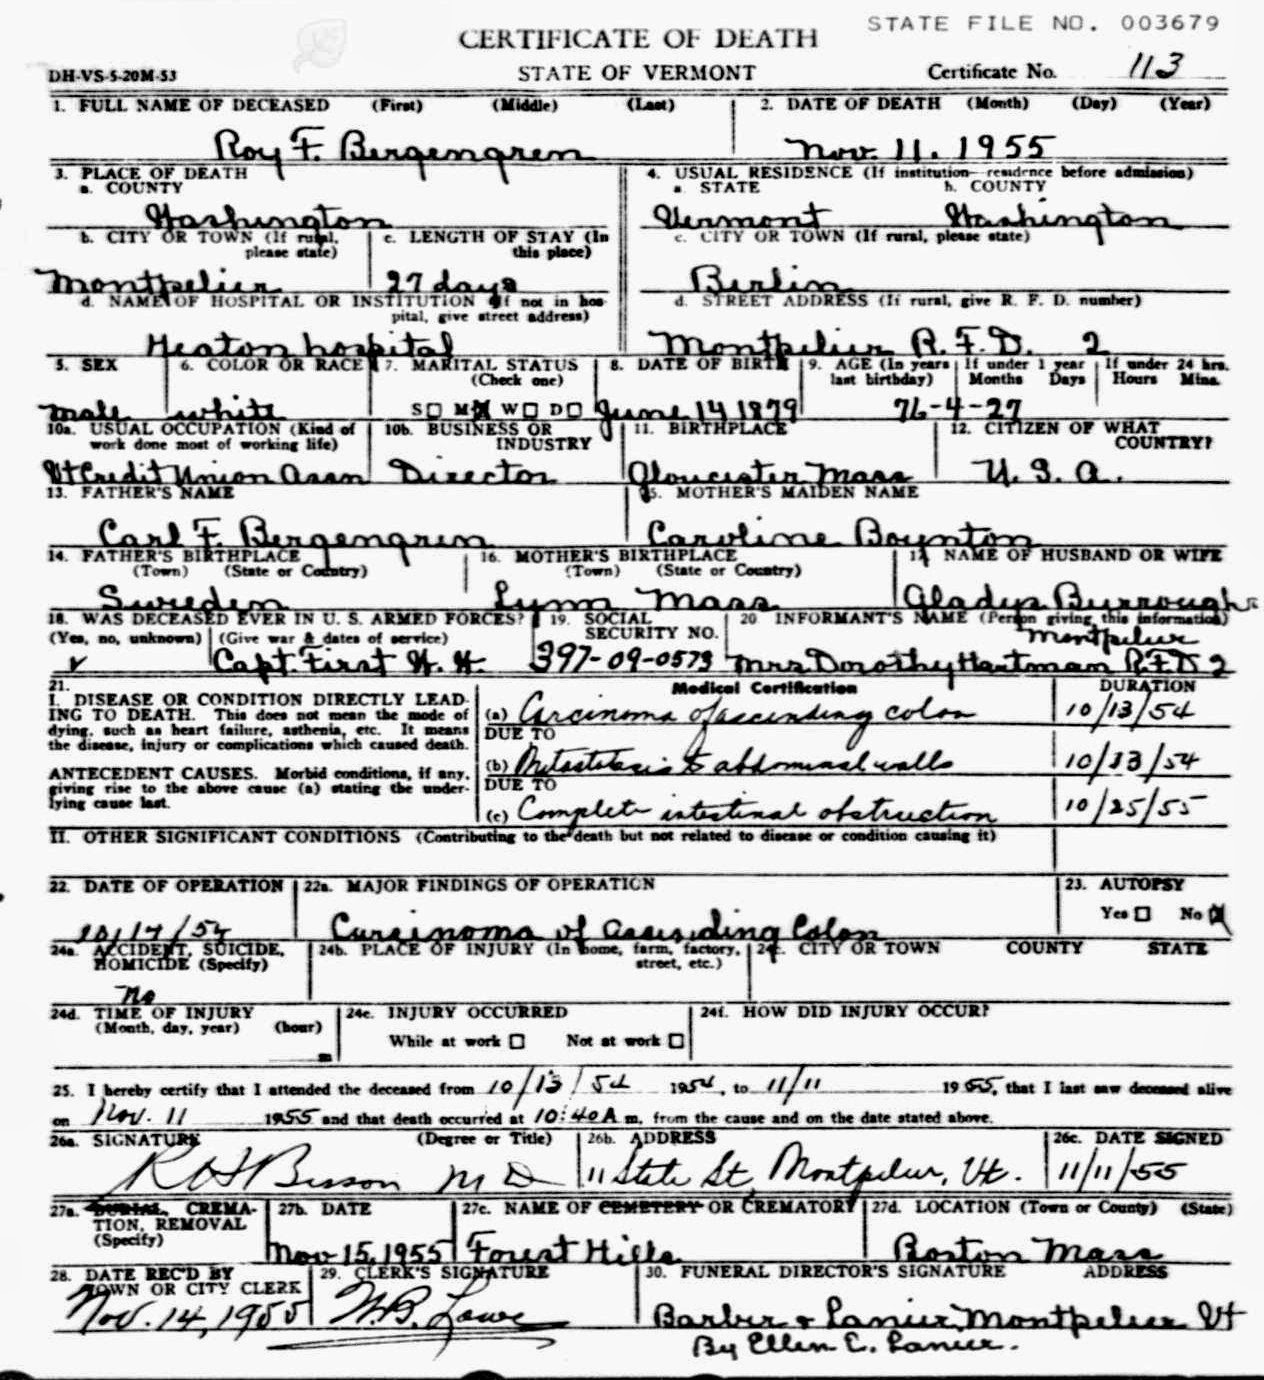 STATE FILE NO. 003679
CERTIFICATE OF DEATH
DH-VS-5-20M-53 STATE OF VERMONT Certificate No. 113
1. FULL NAME OF DECEASED (First) (Middle) (Last) 2. DATE OF DEATH (Month) (Day) (Year)
Roy F. Bergengren Nov. 11. 1955
3. PLACE OF DEATH 4. USUAL RESIDENCE (If institution—residence before admission)
a. COUNTY a. STATE b. COUNTY
Washington Vermont Washington
b. CITY OR TOWN (If rural, c. LENGTH OF STAY (In c. CITY OR TOWN (If rural, please state)
please state) this place)
Montpelier 27 days Berlin
d. NAME OF HOSPITAL OR INSTITUTION (If not in hos- d. STREET ADDRESS (If rural, give R. F. D. number)
pital, give street address)
Heaton hospital Montpelier R. F. D. 2
5. SEX 6. COLOR OR RACE 7. MARITAL STATUS 8. DATE OF BIRTH 9. AGE (In years If under 1 year If under 24 hrs.
(Check one) last birthday) Months Days Hours Mins.
male white S M W D June 14 1879 76-4-27
10a. USUAL OCCUPATION (Kind of 10b. BUSINESS OR 11. BIRTHPLACE 12. CITIZEN OF WHAT
work done most of working life) INDUSTRY COUNTRY?
Vt Credit Union Assn Director Gloucester Mass U. S. A.
13. FATHER'S NAME 15. MOTHER'S MAIDEN NAME
Carl F. Bergengren Caroline Boynton
14. FATHER'S BIRTHPLACE 16. MOTHER'S BIRTHPLACE 17. NAME OF HUSBAND OR WIFE
(Town) (State or Country) (Town) (State or Country)
Sweden Lynn Mass Gladys Burroughs
18. WAS DECEASED EVER IN U. S. ARMED FORCES? 19. SOCIAL 20 INFORMANT'S NAME (Person giving this information)
(Yes, no, unknown) (Give war & dates of service) SECURITY NO. Montpelier
Capt. First W. W. 397-09-0573 Mrs Dorothy Hartman R.F.D 2
21. Medical Certification DURATION
I. DISEASE OR CONDITION DIRECTLY LEAD-
ING TO DEATH. This does not mean the mode of (a) Carcinoma of ascending colon 10/13/54
dying, such as heart failure, asthenia, etc. It means DUE TO
the disease, injury or complications which caused death.
(b) Metastasis to abdominal walls 10/13/54
ANTECEDENT CAUSES. Morbid conditions, if any, DUE TO
giving rise to the above cause (a) stating the under-
lying cause last. (c) Complete intestinal obstruction 10/25/55
II. OTHER SIGNIFICANT CONDITIONS (Contributing to the death but not related to disease or condition causing it)
22. DATE OF OPERATION 22a. MAJOR FINDINGS OF OPERATION 23. AUTOPSY
Yes No
10/17/54 Carcinoma of Assending Colon
24a. ACCIDENT, SUICIDE, 24b. PLACE OF INJURY (In home, farm, factory, 24c. CITY OR TOWN COUNTY STATE
HOMICIDE (Specify) street, etc.)
no
24d. TIME OF INJURY 24e. INJURY OCCURRED 24f. HOW DID INJURY OCCUR?
(Month, day, year) (hour)
While at work Not at work
m
25. I hereby certify that I attended the deceased from 10/13/54 1954, to 11/11 1955, that I last saw deceased alive
on Nov. 11 1955 and that death occurred at 10:40A m, from the cause and on the date stated above.
26a. SIGNATURE (Degree or Title) 26b. ADDRESS 26c. DATE SIGNED
R H Bisson M D 11 State St, Montpelier, Vt. 11/11/55
27a. BURIAL, CREMA- 27b. DATE 27c. NAME OF CEMETERY OR CREMATORY 27d. LOCATION (Town or County) (State)
TION, REMOVAL
(Specify)
Nov 15, 1955 Forest Hills Boston Mass
28. DATE REC'D BY 29. CLERK'S SIGNATURE 30. FUNERAL DIRECTOR'S SIGNATURE ADDRESS
TOWN OR CITY CLERK
Nov. 14, 1955 Barber & Lanier Montpelier Vt
By Ellen E. Lanier.